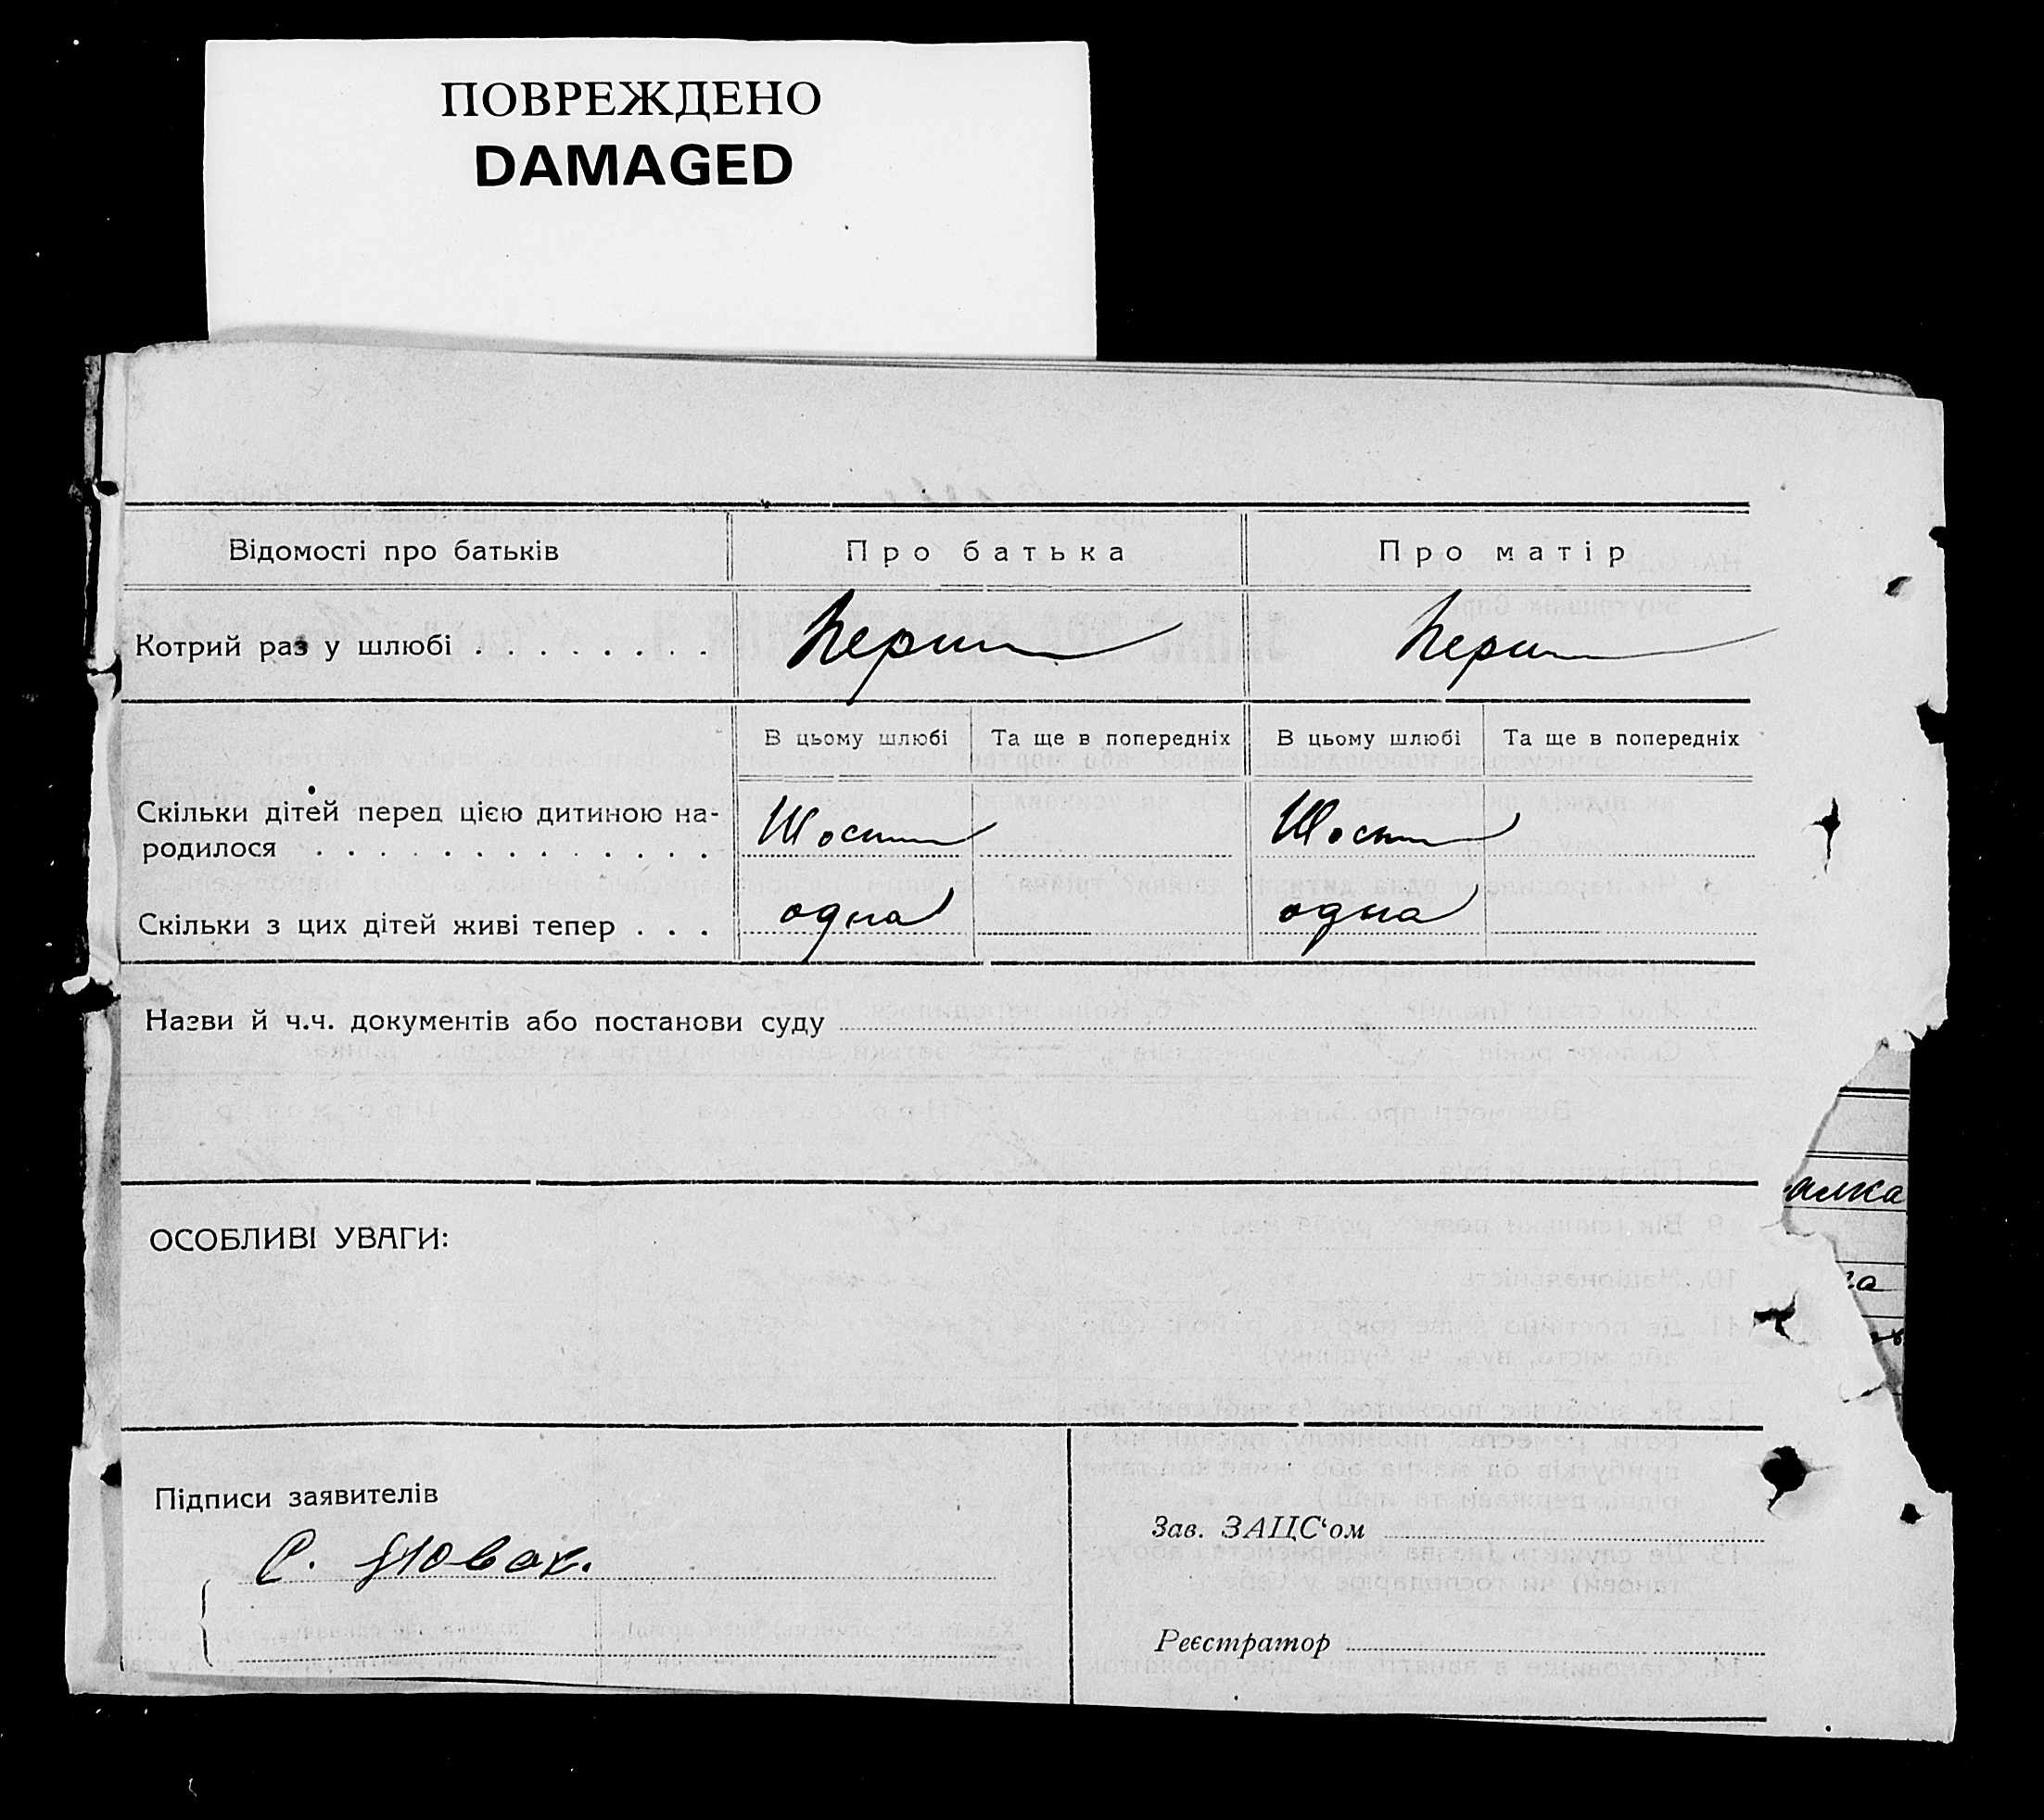 ПОВРЕЖДЕНО
DAMAGED
Відомості про батьків
Про батька
Про матір
Котрий раз у шлюбі . . . . . . . .
Перши
Перши
В цьому шлюбі
Та ще в попередніх
В цьому шлюбі
Та ще в попередніх
Скільки дітей перед цією дитиною на-
родилося . . . . . . . . . . . . . .
Шости
Шости
Скільки з цих дітей живі тепер . . .
одна
одна
Назви й ч.ч. документів або постанови суду
алка
ОСОБЛИВІ УВАГИ:
Підписи заявителів
С. Новак.
Зав. ЗАЦС‘ом
Реєстратор